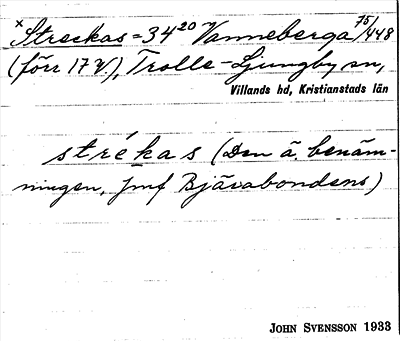 × Streckas = 34²⁰ Vanneberga 75/448
(förr 17 V.), Trolle-Ljungby sn,
Villands hd, Kristianstads län
strékas (Den ä. benäm-
ningen, jmf Bjävabondens)
JOHN SVENSSON 1933